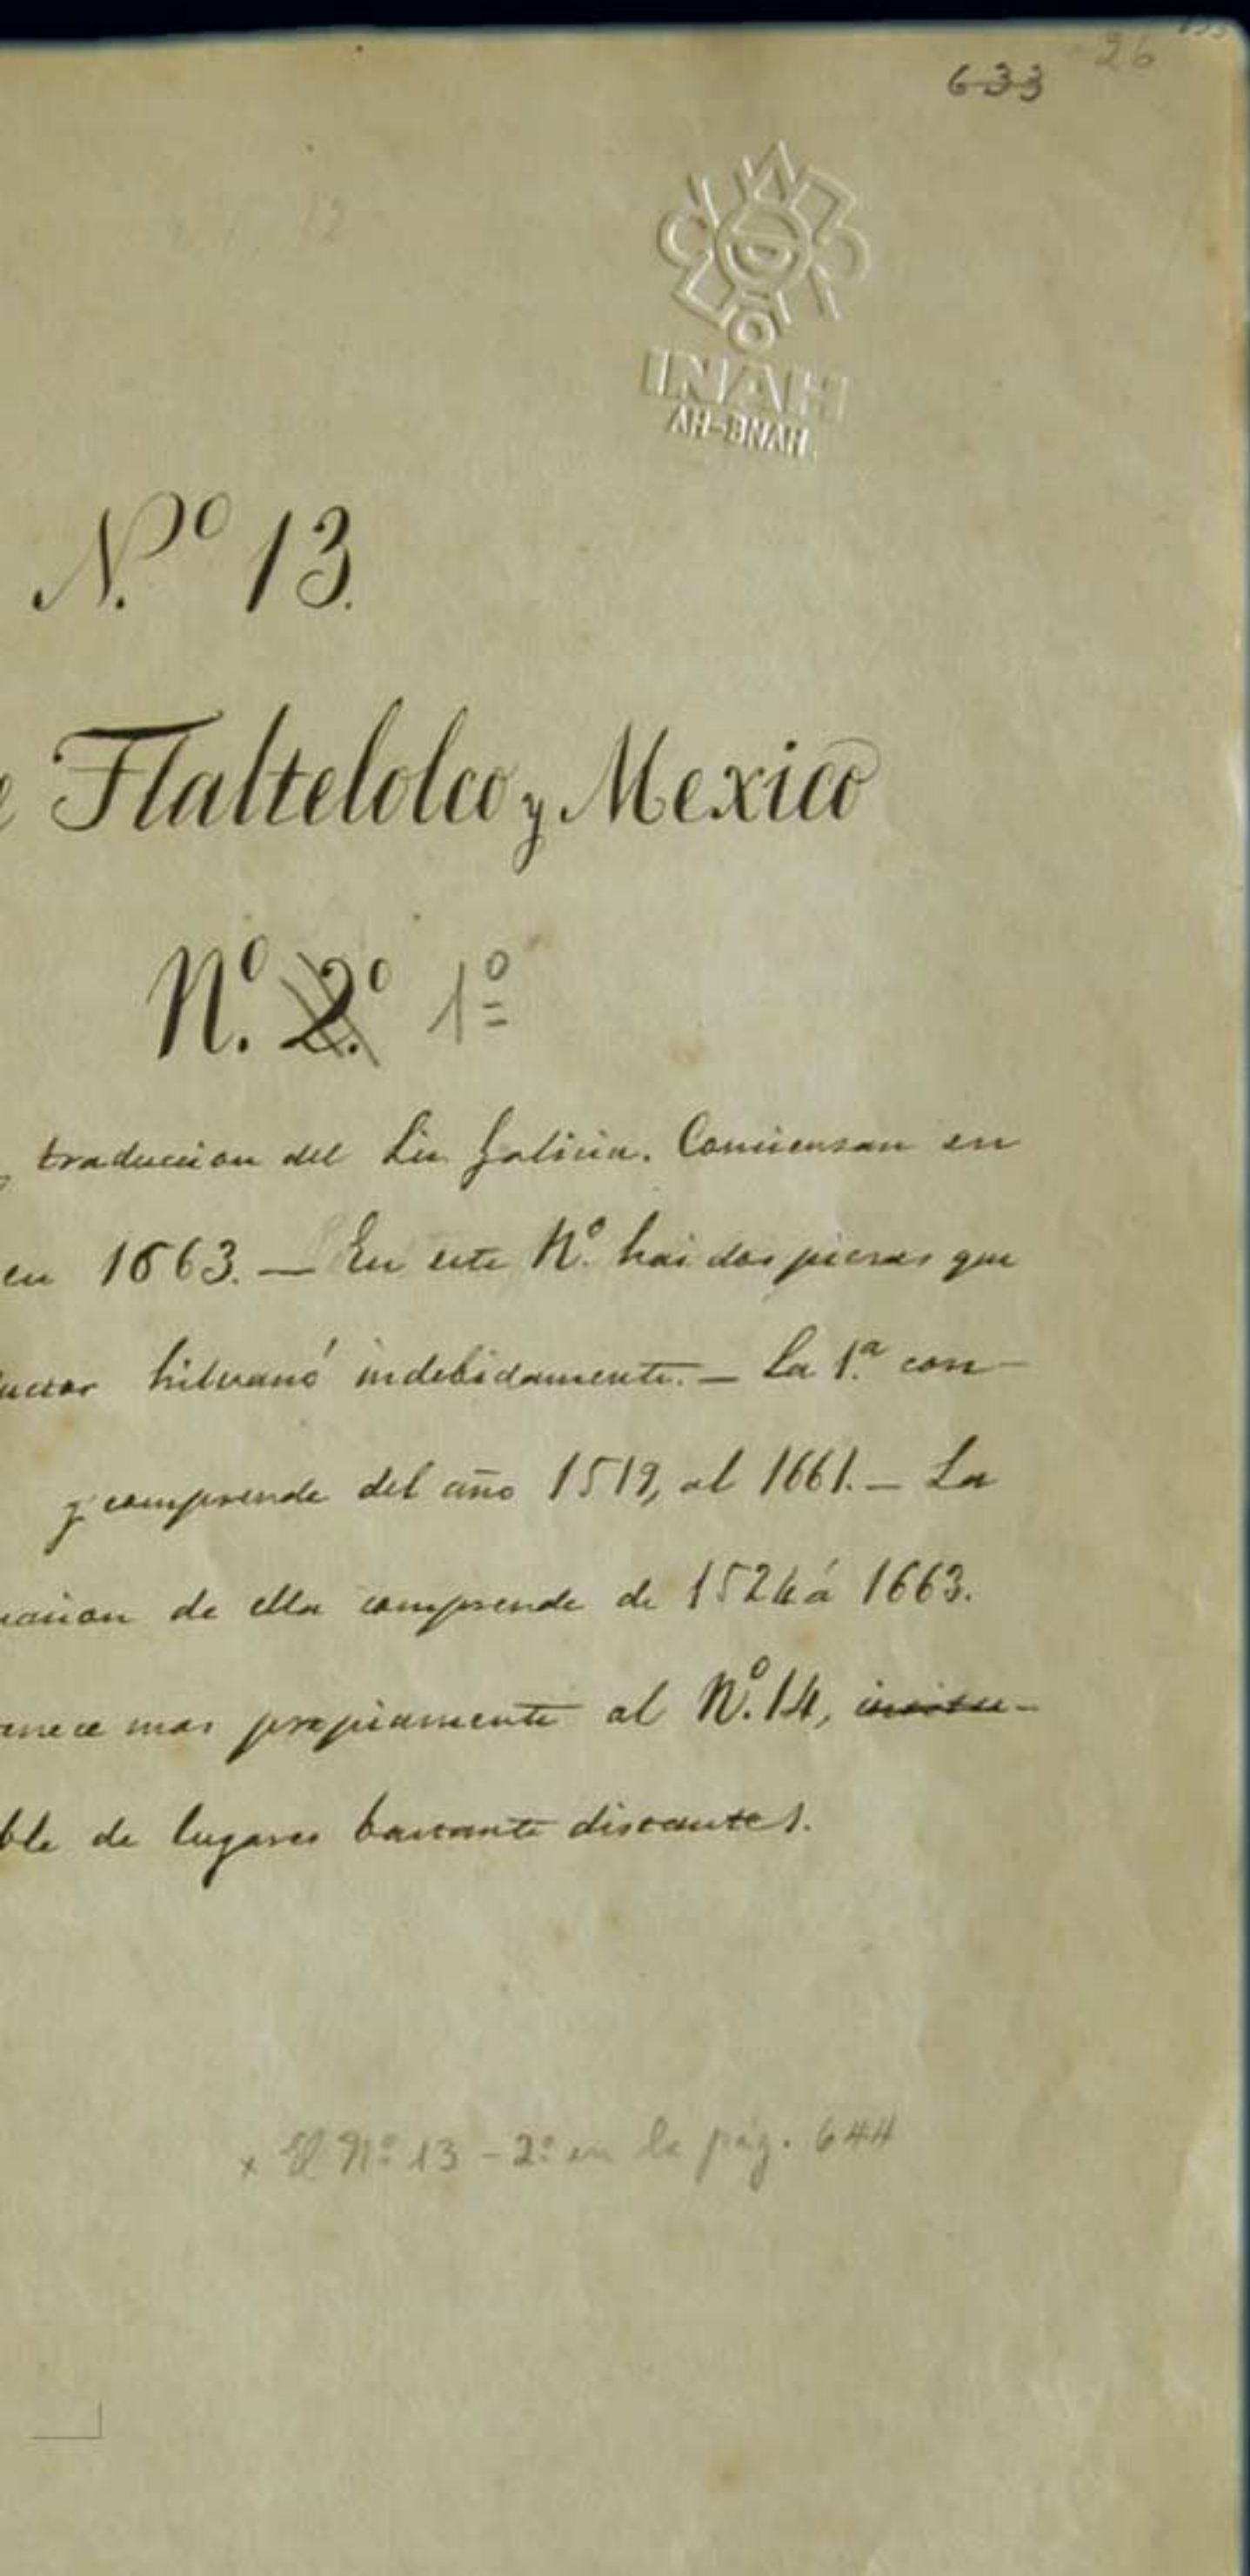 26
633
12
INAH
AH-BNAH
N.º 13.
Tlaltelolco y Mexico
N.º 2.º 1º
traduccion del Lic Galicia. Comienzan en
en 1663. — En este Nº. hai dos piezas que
hilvanó indebidamente. — La 1.ª con-
y comprende del año 1519, al 1661. — La
de ella comprende de 1524 á 1663.
nece mas propiamente al Nº. 14,
ble de lugares bastante distantes.
x El Nº 13 - 2º en la pág. 644